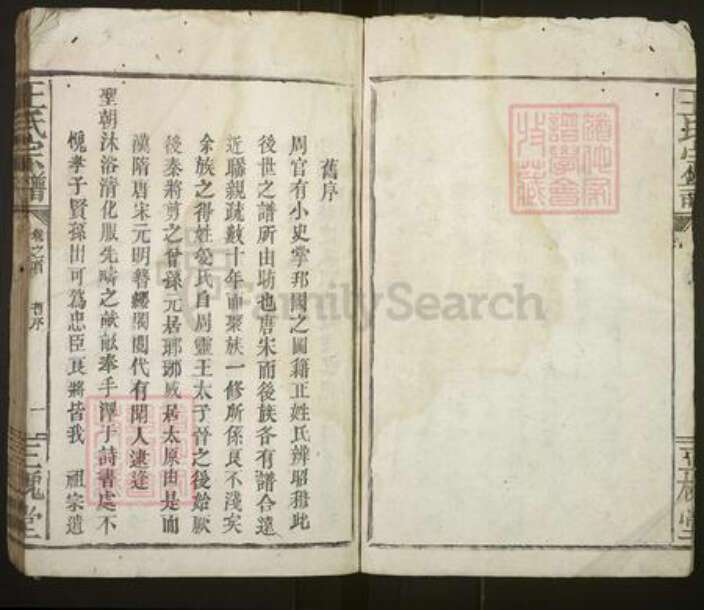 舊序
周官有小史掌邦國之圖籍正姓氏辨昭穆此
後世之譜所由昉也唐宋而後族各有譜合遠
近聯親疏數十年而聚族一修所係良不淺矣
余族之得姓受氏自周靈王太子晉之後始厥
後秦將剪之晉孫元居瑯琊威居太原由是而
漢隋唐宋元明簪纓閥閱代有聞人逮逢
聖朝沐浴清化服先疇之畝奉手澤于詩書處不
愧孝子賢孫出可為忠臣良將皆我 祖宗遺
王氏宗譜
卷之首 舊序
一
三槐堂
FamilySearch